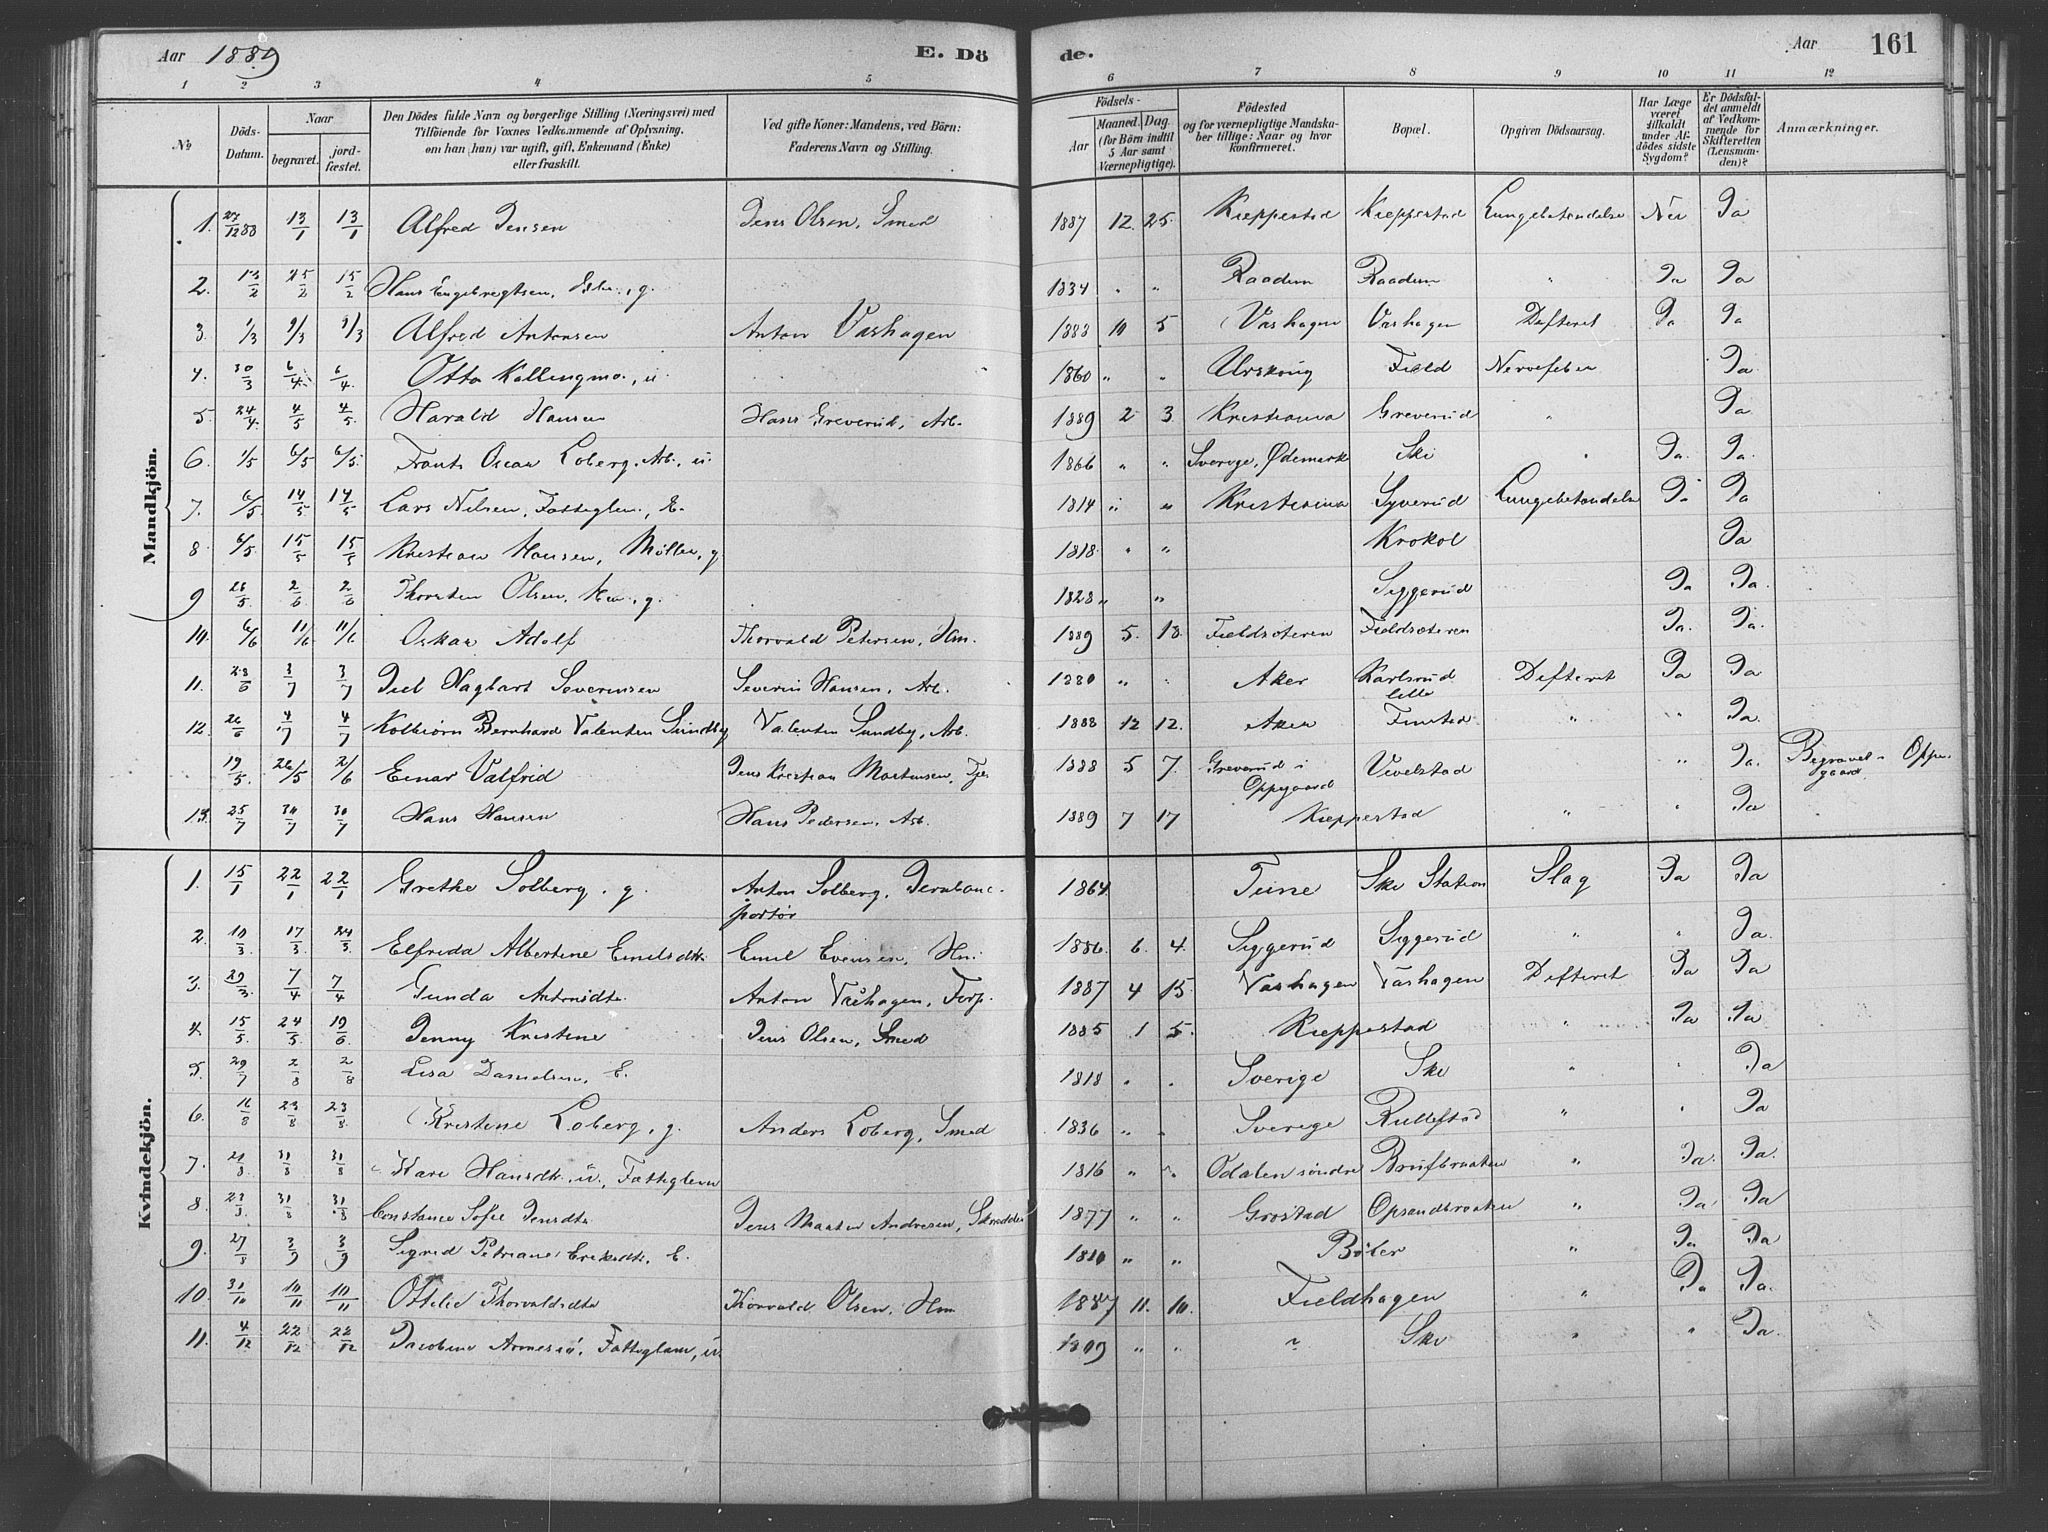 Aar 1889 E. Dö de. Aar 161
1 2 3 4 5 6 7 8 9 10 11 12
No Döds-Datum. Naar begravet. jordfæstet. Den Dödes fulde Navn og borgerlige Stilling (Næringsvei) med Tilföiende for Voxnes Vedkommende af Oplysning, om han (hun) var ugift, gift, Enkemand (Enke) eller fraskilt. Ved gifte Koner: Mandens, ved Börn: Faderens Navn og Stilling. Födsels- Aar Maaned. Dag. (for Börn indtil 5 Aar samt Værnepligtige). Födested og for værnepligtige Mandskaber tillige: Naar og hvor konfirmeret. Bopæl. Opgiven Dödsaarsag. Har Læge været tilkaldt under Afdödes sidste Sygdom? Er Dödsfaldet anmeldt af Vedkommende for Skifteretten (Lensmanden)? Anmærkninger.
Mandkjön.
1. 27/12 88 13/1 13/1 Alfred Jensen Jens Olsen, Smed 1887 12. 25. Kieppestad Kieppestad Lungebetændelse Nei Ja
2. 13/2 25/2 15/2 Hans Engebregtsen, g. 1834 " " Raadum Raadum " Ja Ja
3. 1/3 9/3 9/3 Alfred Antonsen Anton Vashagen 1888 10 5 Vashagen Vashagen Difteret Ja Ja
4. 30/3 6/4 6/4 Otto Kollingmo, u 1860 " " Urskoug Field Nervefeber Ja
5 24/4 4/5 4/5 Harald Hansen Hans Greverud, Arb. 1889 2 3 Kristiania Greverud " Ja
6. 1/5 6/5 6/5 Frants Oscar Loberg, Arb., u. 1866 " " Sverige, Ødemark Ski " Ja. Ja.
7. 6/5 14/5 14/5 Lars Nilsen, Fattiglem, E. 1814 " " Kristiania Syverud Lungebetændelse Ja Ja
8 6/5 15/5 15/5 Kristian Hansen, Møller, g 1818 " " Krokol Ja
9 26/5 2/6 2/6 Thorsten Olsen, g. 1828 " " Siggerud Ja Ja.
10. 6/6 11/6 11/6 Oskar Adolf Thorvald Petersen, Hm. 1889 5. 18. Fieldsæteren Fieldsæteren Ja. Ja.
11. 28/6 3/7 3/7 Juel Hagbart Severinsen Severin Hansen, Arb. 1880 " " Aker Karlsrud lille Difteret Ja Ja
12. 26/6 4/7 4/7 Kolbiørn Bernhard Valentin Sundby Valentin Sundby, Arb. 1888 12 12. Aker Finstad " " Ja.
19/5. 26/5 2/6 Einar Valfrid Jens Kristian Mortensen, 1888 5 7. Greverud i Oppegaard Vevelstad " Ja. Begravet i Oppegaard
13. 25/7 30/7 30/7 Hans Hansen Hans Pedersen, Arb. 1889 7 17 Kieppestad " " Ja
Kvindekjön.
1. 15/1 22/1 22/1 Grethe Solberg, g. Anton Solberg, Jernbaneportør 1864 Teine Ski Station Slag Ja Ja
2. 10/3. 17/3. 24/3 Elfrida Albertine Emilsdtr. Emil Evensen, Hm. 1886. 6. 4. Siggerud Siggerud " " Ja.
3. 29/3. 7/4 7/4 Gunda Antonsdtr. Anton Våshagen, Forp. 1887 4 15. Vashagen Våshagen Difteret Ja Ja
4. 15/5. 24/5 19/6 Jenny Kristine Jens Olsen, Smed 1885 1 5. Kieppestad " Ja Ja
5. 29/7 2/8 2/8 Lisa Danielsen, E. 1818 " " Sverige Ski " " Ja
6. 16/8 23/8 23/8. Kristine Loberg, g. Anders Loberg, Smed 1836 " " Sverige Rullestad " " Ja
7. 21/8. 31/8 31/8 Kari Hansdtr. u., Fattiglem 1816 " " Odalen søndre Brufbraaten " Ja. Ja.
8. 23/8 31/8 31/8 Constance Sofie Jensdtr Jens Martin Andresen, Skrædder 1877 " " Grostad Opsandbraaten " Ja Ja
9. 27/8 3/9 3/9 Sigrid Petriane Eriksdtr. E. 1810 " " Bøler " Ja Ja
10. 31/10 10/11 10/11 Ottelie Thorvaldsdtr Thorvald Olsen, Hm 1887 11. 10. Fieldhagen " Ja Ja.
11. 4/12 22/12. 22/12 Jacobine Arnesen, Fattiglem, u. 1809 " " " Ski " " Ja.